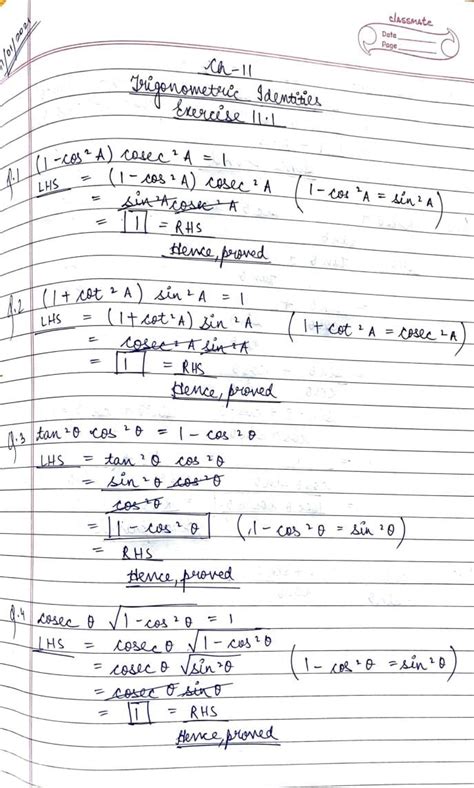 classmate
Date
Page
Ch-11
Trigonometric Identities
Exercise 11.1
Q.1 (1-cos²A) cosec²A = 1
LHS = (1-cos²A) cosec²A (1-cos²A = sin²A)
= sin²A cosec²A
= 1 = RHS
Hence, proved
Q.2 (1+cot²A) sin²A = 1
LHS = (1+cot²A) sin²A (1+cot²A = cosec²A)
= cosec²A sin²A
= 1 = RHS
Hence, proved
Q.3 tan²θ cos²θ = 1-cos²θ
LHS = tan²θ cos²θ
= sin²θ cos²θ
cos²θ
= 1-cos²θ (1-cos²θ = sin²θ)
= RHS
Hence, proved
Q.4 cosec θ √1-cos²θ = 1
LHS = cosec θ √1-cos²θ
= cosec θ √sin²θ (1-cos²θ = sin²θ)
= cosec θ sin θ
= 1 = RHS
Hence, proved